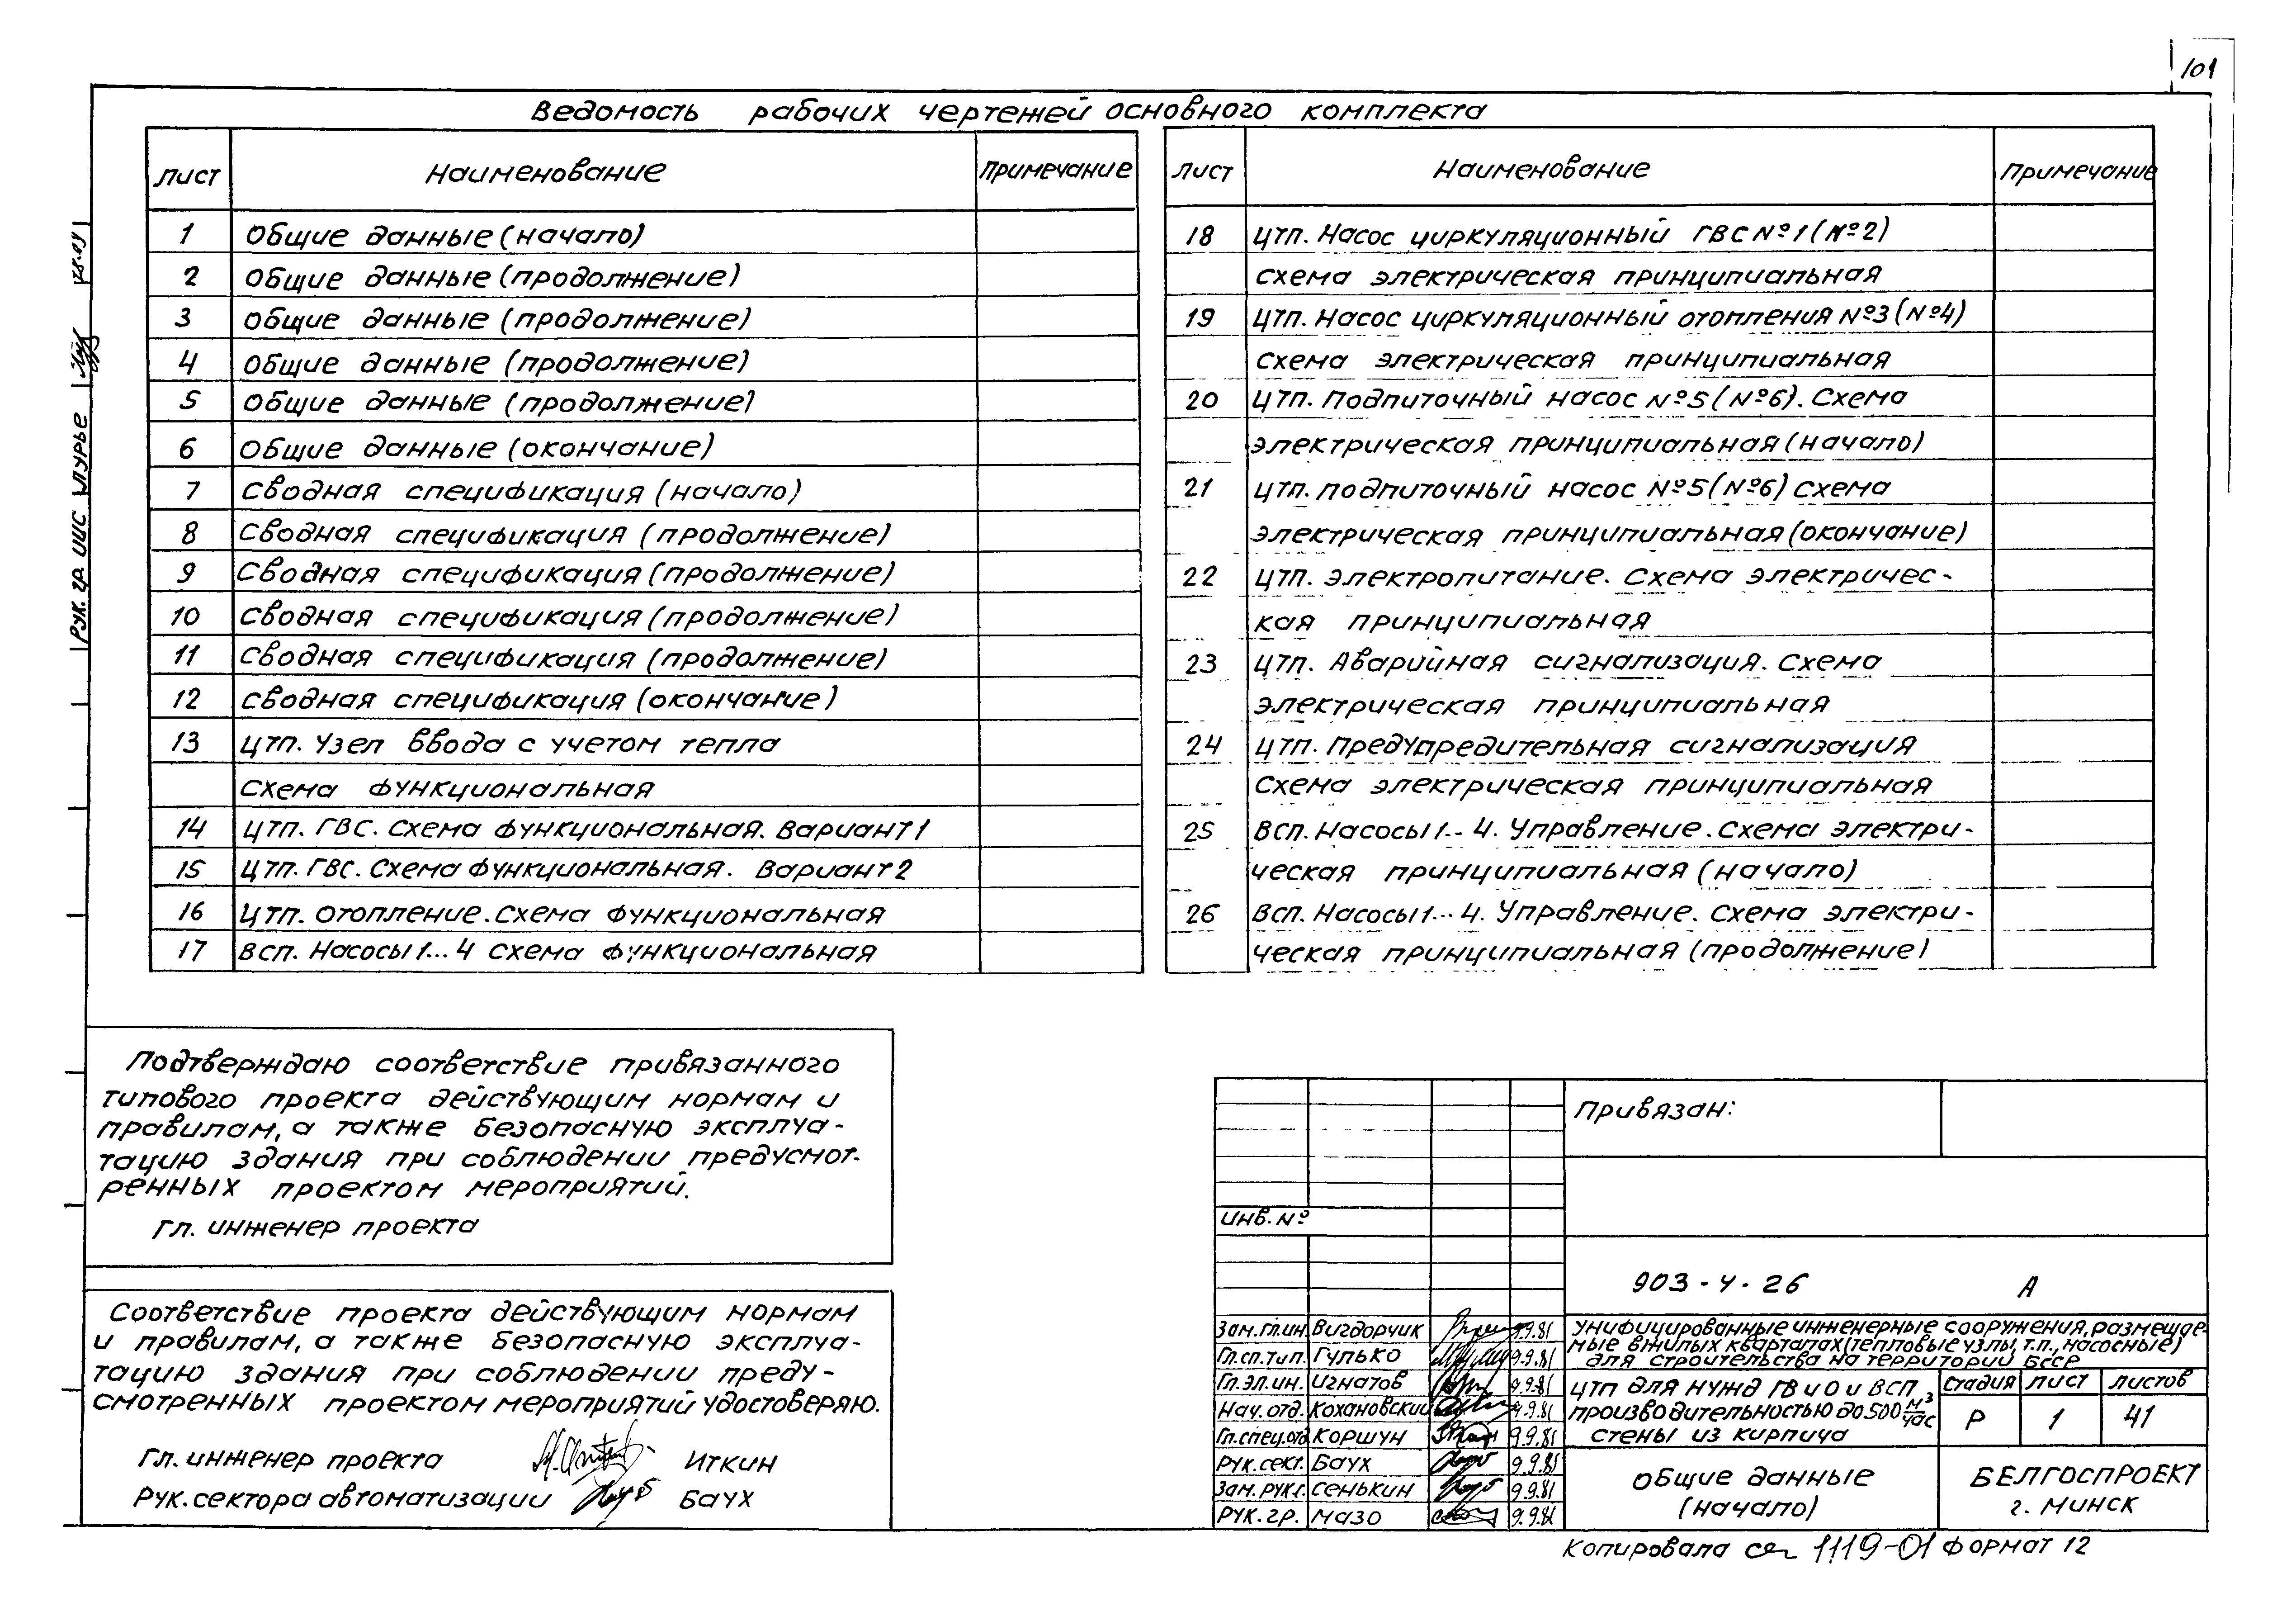 101
Ведомость рабочих чертежей основного комплекта
Лист Наименование Примечание
1 Общие данные (начало)
2 Общие данные (продолжение)
3 Общие данные (продолжение)
4 Общие данные (продолжение)
5 Общие данные (продолжение)
6 Общие данные (окончание)
7 Сводная спецификация (начало)
8 Сводная спецификация (продолжение)
9 Сводная спецификация (продолжение)
10 Сводная спецификация (продолжение)
11 Сводная спецификация (продолжение)
12 Сводная спецификация (окончание)
13 ЦТП. Узел ввода с учетом тепла
Схема функциональная
14 ЦТП. ГВС. Схема функциональная. Вариант 1
15 ЦТП. ГВС. Схема функциональная. Вариант 2
16 ЦТП. Отопление. Схема функциональная
17 ВСП. Насосы 1...4 Схема функциональная
Лист Наименование Примечание
18 ЦТП. Насос циркуляционный ГВС №1 (№2)
Схема электрическая принципиальная
19 ЦТП. Насос циркуляционный отопления №3 (№4)
Схема электрическая принципиальная
20 ЦТП. Подпиточный насос №5 (№6). Схема
электрическая принципиальная (начало)
21 ЦТП. Подпиточный насос №5 (№6) Схема
электрическая принципиальная (окончание)
22 ЦТП. Электропитание. Схема электричес-
кая принципиальная
23 ЦТП. Аварийная сигнализация. Схема
электрическая принципиальная
24 ЦТП. Предупредительная сигнализация
Схема электрическая принципиальная
25 ВСП. Насосы 1...4. Управление. Схема электри-
ческая принципиальная (начало)
26 ВСП. Насосы 1...4. Управление. Схема электри-
ческая принципиальная (продолжение)
Рук. гр. ИИС Шурье
Подтверждаю соответствие привязанного
типового проекта действующим нормам и
правилам, а также безопасную эксплуа-
тацию здания при соблюдении предусмот-
ренных проектом мероприятий.
Гл. инженер проекта
Соответствие проекта действующим нормам
и правилам, а также безопасную эксплуа-
тацию здания при соблюдении преду-
смотренных проектом мероприятий удостоверяю.
Гл. инженер проекта Иткин
Рук. сектора автоматизации Баух
Привязан:
Инв. №
903-4-26 А
Зам.гл.ин. Вигдорчик 9.9.81
Гл.сп.тип. Гулько 9.9.81
Гл.эл.ин. Игнатов 9.9.81
Нач.отд. Кохановский 9.9.81
Гл.спец.отд. Коршун 9.9.81
Рук.сект. Баух 9.9.81
Зам.рук.с. Сенькин 9.9.81
Рук.гр. Мазо 9.9.81
Унифицированные инженерные сооружения, размещае-
мые в жилых кварталах (тепловые узлы, т.п., насосные)
для строительства на территории БССР
ЦТП для нужд ГВ и О и ВСП
производительностью до 500 м³/час
стены из кирпича
Стадия Лист Листов
Р 1 41
Общие данные
(начало)
БЕЛГОСПРОЕКТ
г. Минск
Копировала 1119-01 Формат 12